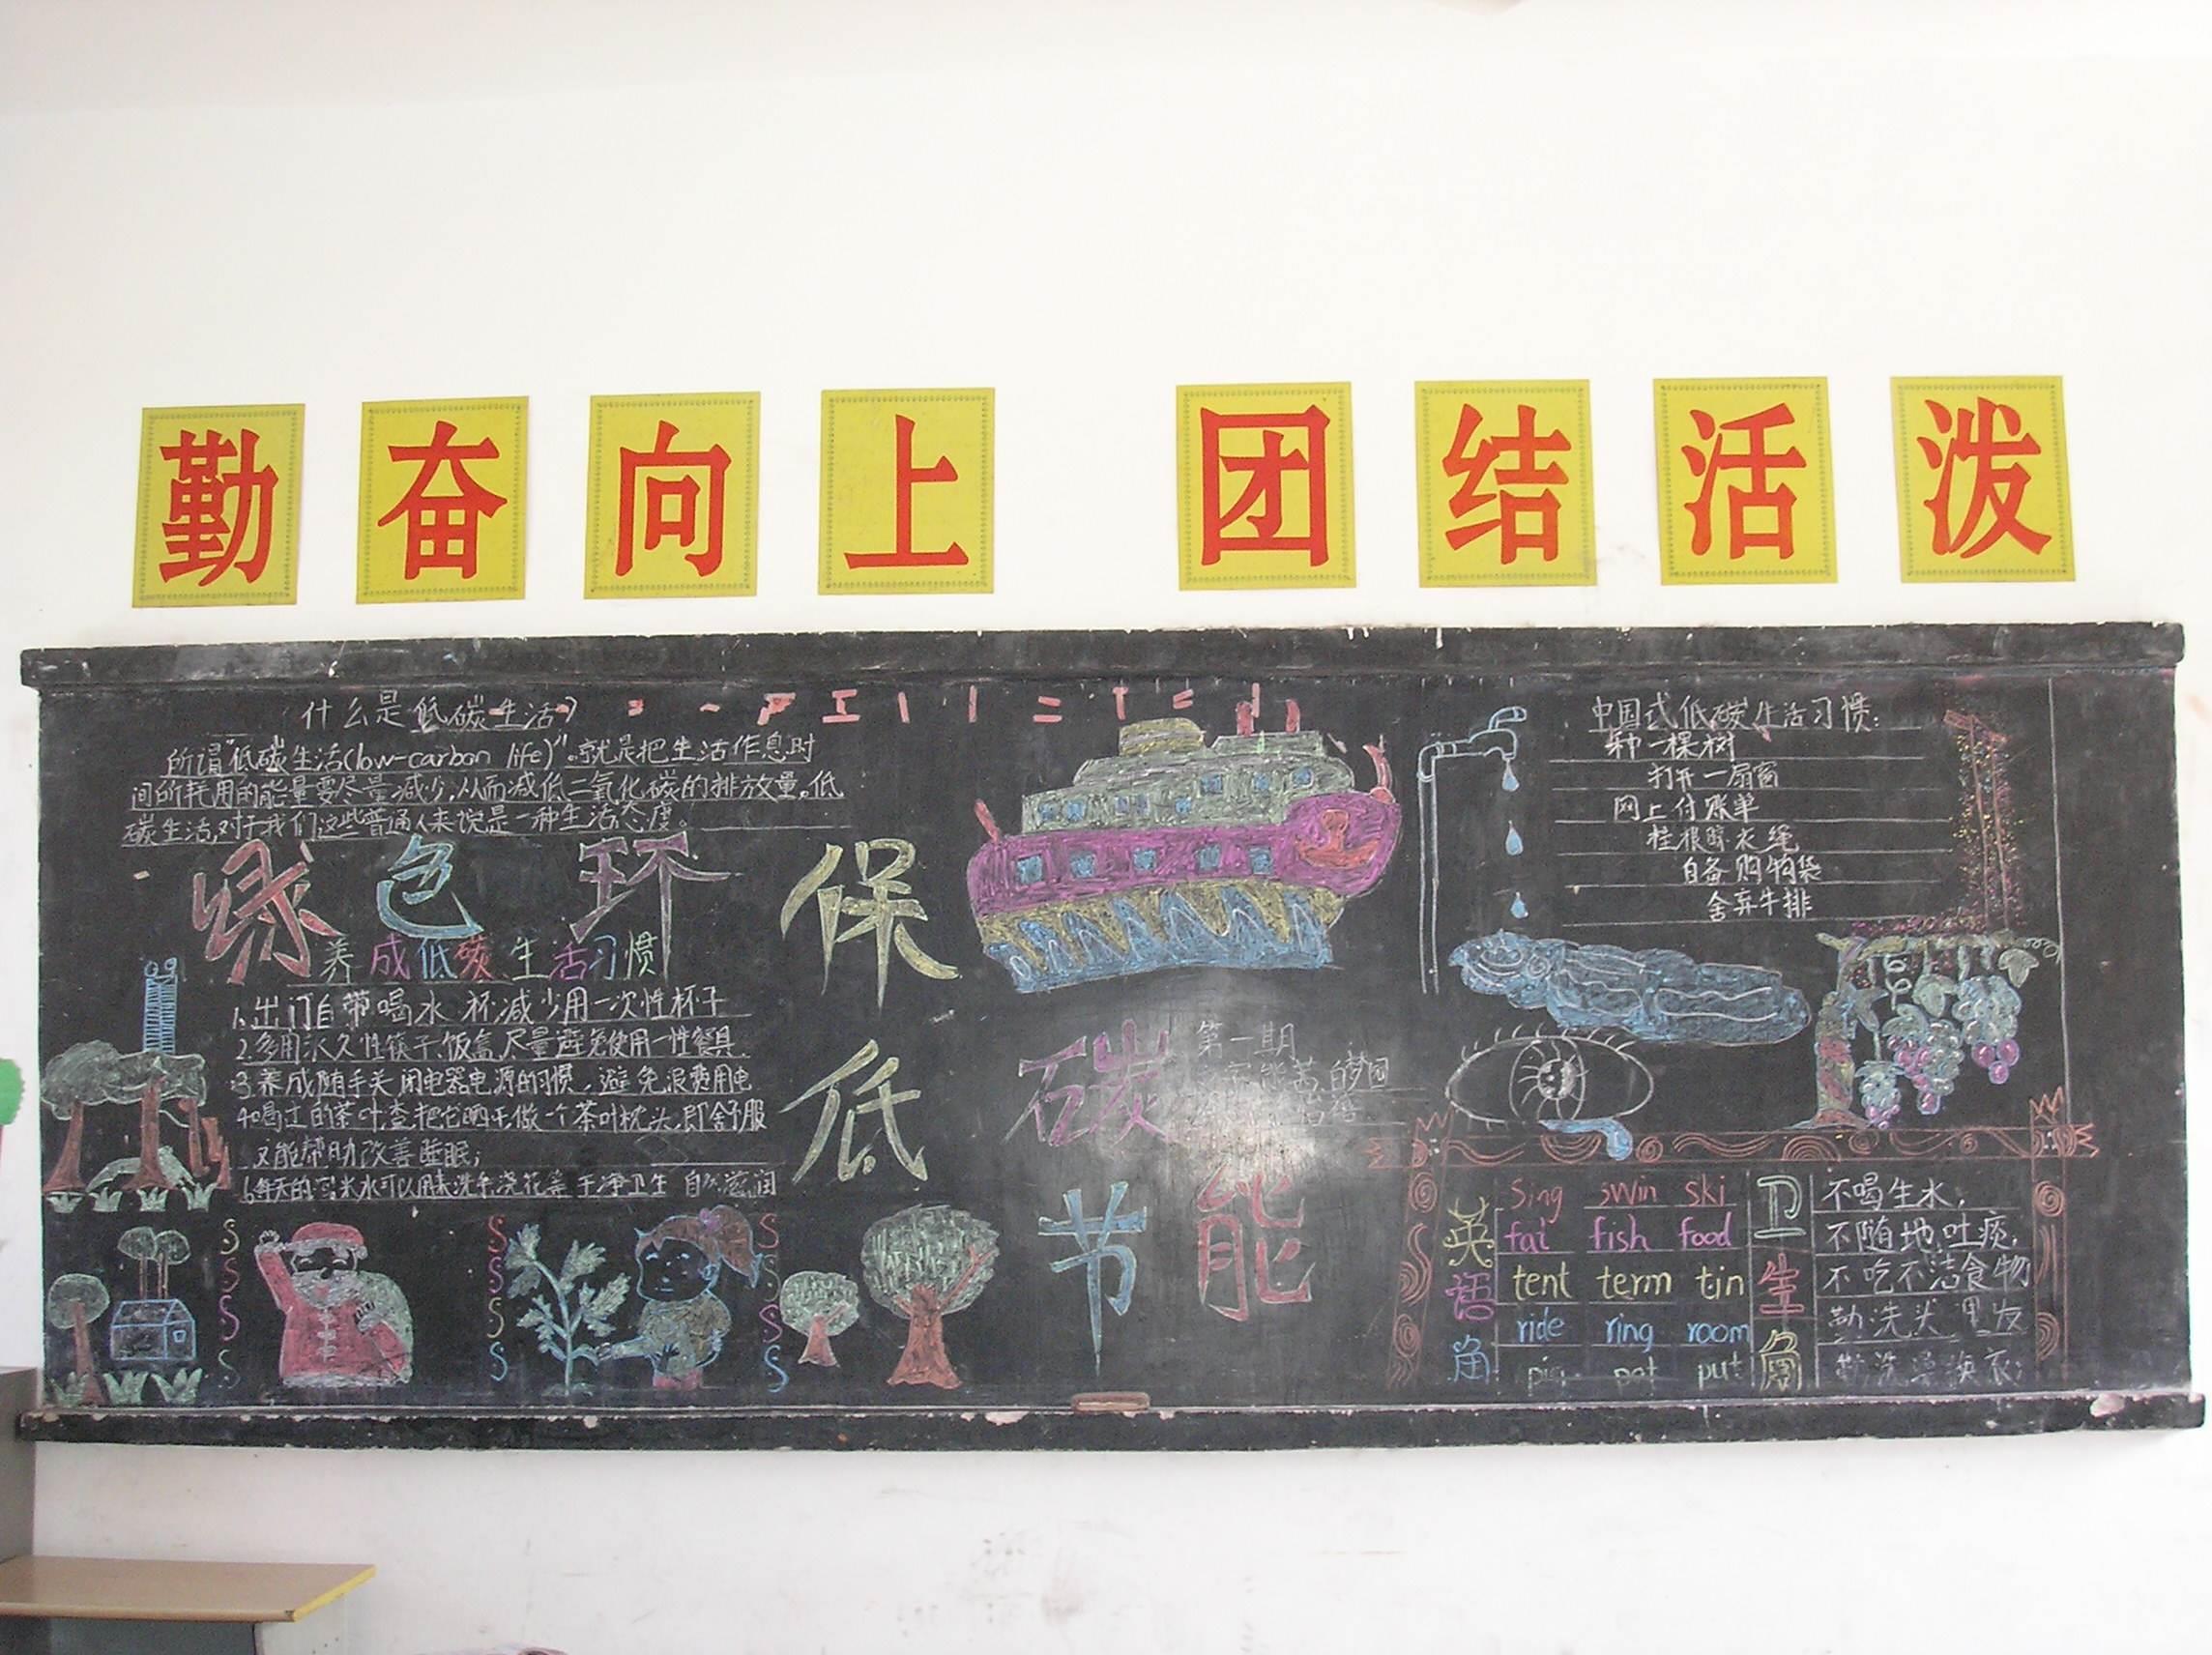 勤奋向上 团结活泼
什么是低碳生活?
所谓"低碳生活(low-carbon life)"就是把生活作息时
间所耗用的能量要尽量减少,从而减低二氧化碳的排放量。低
碳生活,对于我们这些普通人来说是一种生活态度。
绿色环保
低碳
节能
养成低碳生活习惯
1.出门自带喝水杯减少用一次性杯子
2.多用永久性筷子、饭盒,尽量避免使用一性餐具.
3.养成随手关闭电器电源的习惯,避免浪费用电
4.喝过的茶叶渣把它晒干,做一个茶叶枕头,即舒服
又能帮助改善睡眠;
每天的淘米水可以用来洗手浇花等干净卫生 自然滋润
第一期
中国式低碳生活习惯:
种一棵树
打开一扇窗
网上付账单
挂根晾衣绳
自备购物袋
舍弃牛排
英语角
sing swin ski
fat fish food
tent term tin
ride ring room
pig pet put
卫生角
不喝生水,
不随地吐痰,
不吃不洁食物
勤洗头